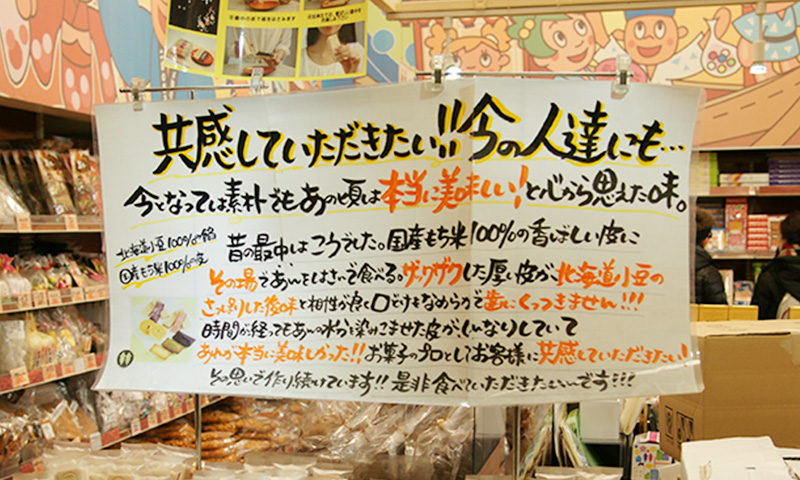 共感していただきたい!!今の人達にも…
今となっては素朴でもあの頃は本当に美味しい!と心から思えた味。
北海道小豆100%の餡
国産もち米100%の皮
昔の最中はこうでした。国産もち米100%の香ばしい皮に
その場であんをはさいで食べる。ザックザクした厚い皮が、北海道小豆の
さっぱりした後味と相性が良く口どけもなめらかで歯にくっつきません!!!
時間が経ってもあんの水分を染みこませた皮が、しんなりしていて
あれが本当に美味しかった!!お菓子のプロとしてお客様に共感していただきたい!
その思いで作り続けています!!是非食べていただきたいいいです!!!